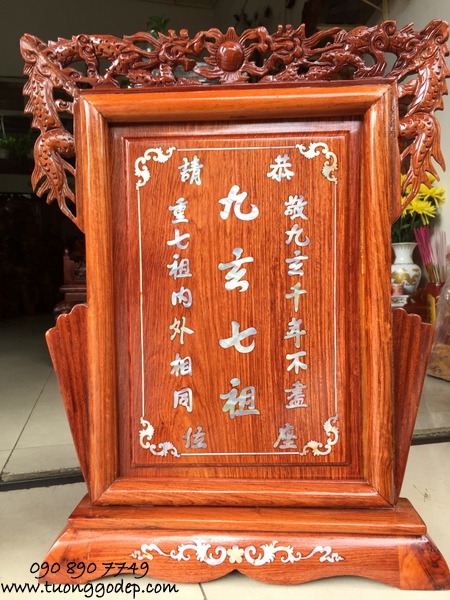 恭請
敬九玄千年不盡
九玄七祖
重七祖内外相同
座位
090 890 7749
www.tuonggodep.com